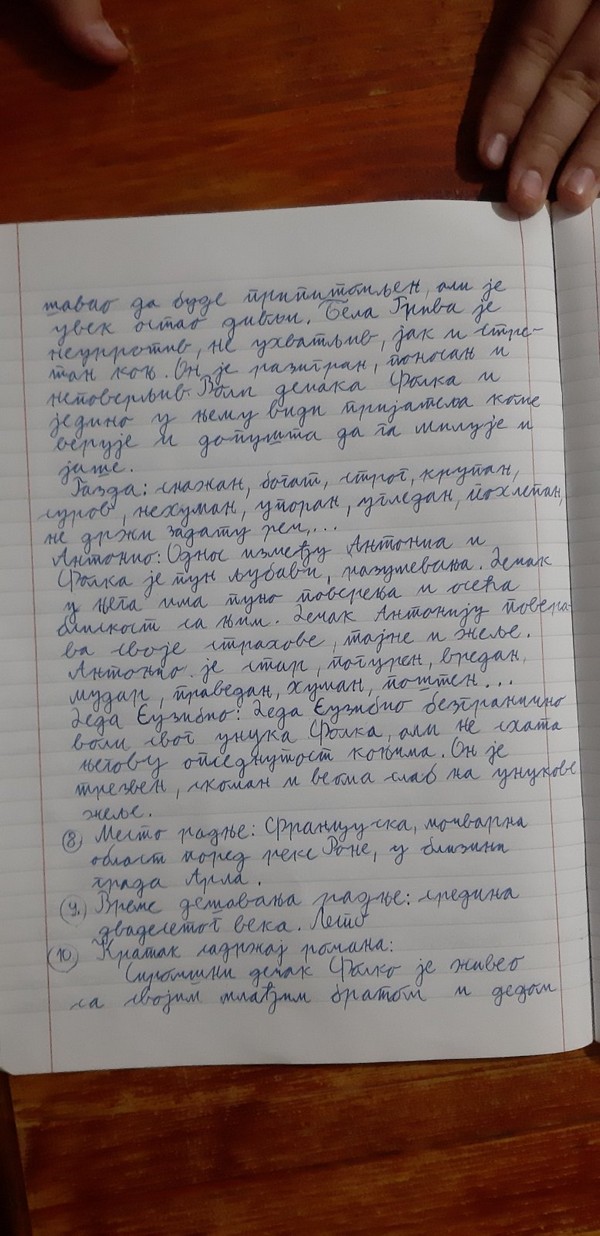 шавао да буде припитомљен, али је
увек остао дивљи. Бела Грива је
неукротив, не ухватљив, јак и стра-
тан коњ. Он је разигран, поносан и
неповерљив. Воли дечака Фолка и
једино у њему види пријатеља коме
верује и допушта да га милује и
јаше.
Газда: снажан, богат, строг, крупан,
суров, нехуман, упоран, угледан, похлепан,
не држи задату реч,...
Антонио: Однос између Антониа и
Фолка је пун љубави, разумевања. Дечак
у њега има пуно поверења и осећа
блискост са њим. Дечак Антонију повера-
ва своје страхове, тајне и жеље.
Антонио је стар, погурен, вредан,
мудар, праведан, хуман, поштен...
Деда Еузибио: Деда Еузибио безгранично
воли свог унука Фолка, али не схата
његову опседнутост коњима. Он је
трезвен, скоман и веома слаб на унукове
жеље.
8. Место радње: Француска, мочварна
област поред реке Роне, у близини
града Арла.
9. Време дешавања радње: средина
двадесетог века. Лето
10 Кратак садржај романа:
Сиромашни дечак Фолко је живео
са својим млађим братом и дедом